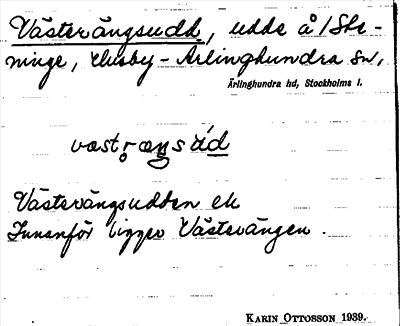 Västerängsudd, udde å/Ste-
ninge, Husby-Ärlinghundra sn,
Ärlinghundra hd, Stockholms l.
Västerängsudden ek
Innanför ligger Västerängen.
KARIN OTTOSSON 1939.